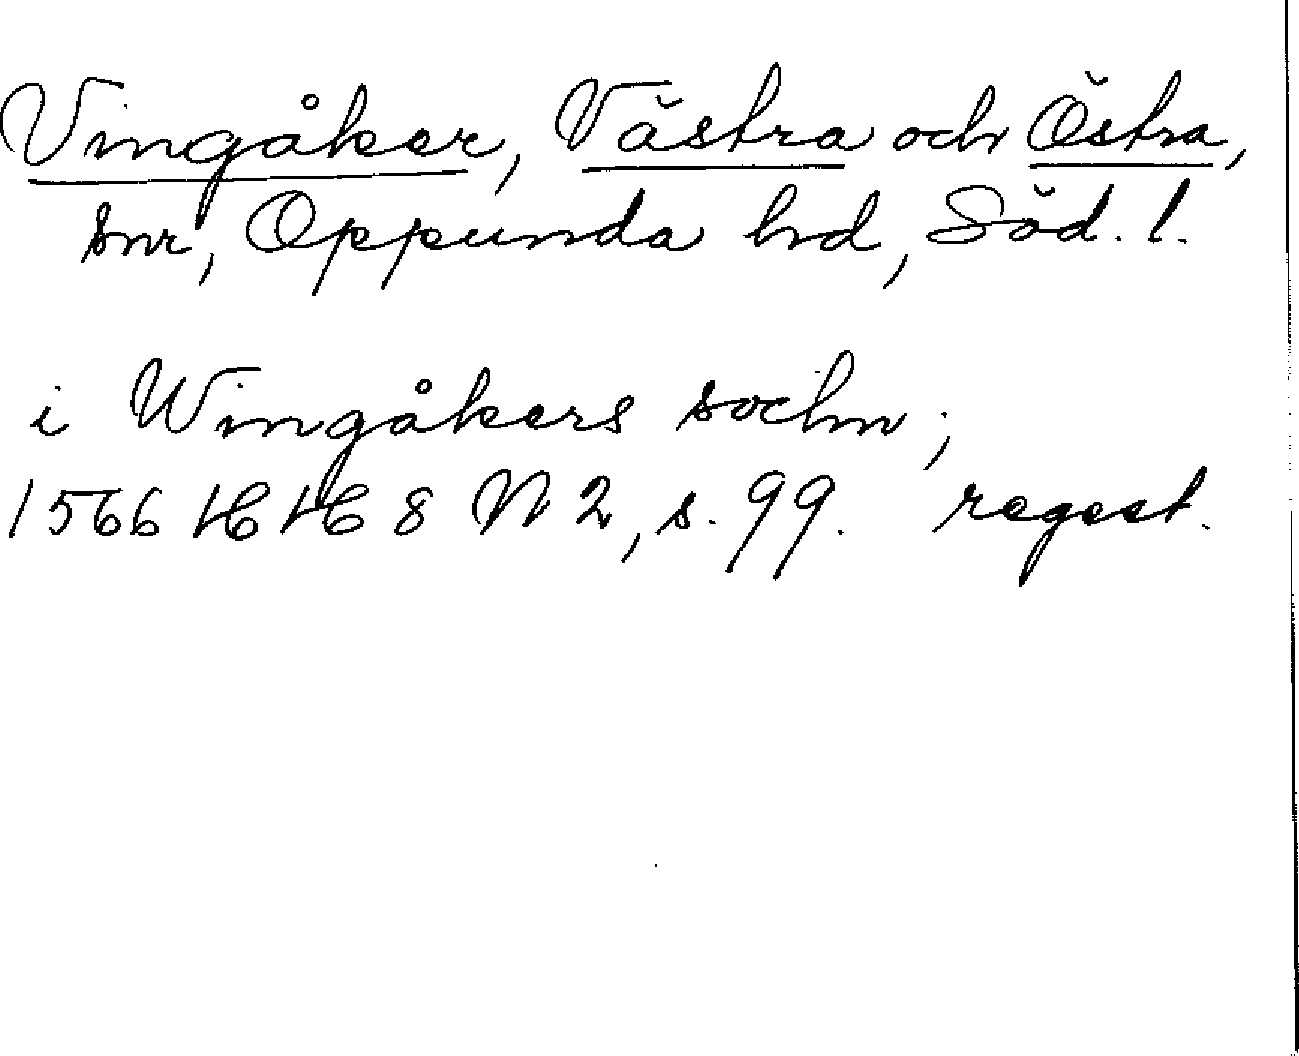 Vingåker, Västra och Östra,
snr, Oppunda hd, Söd. l.
i Wingåkers sochn;
1566 HH 8 N 2, s. 99. regest.